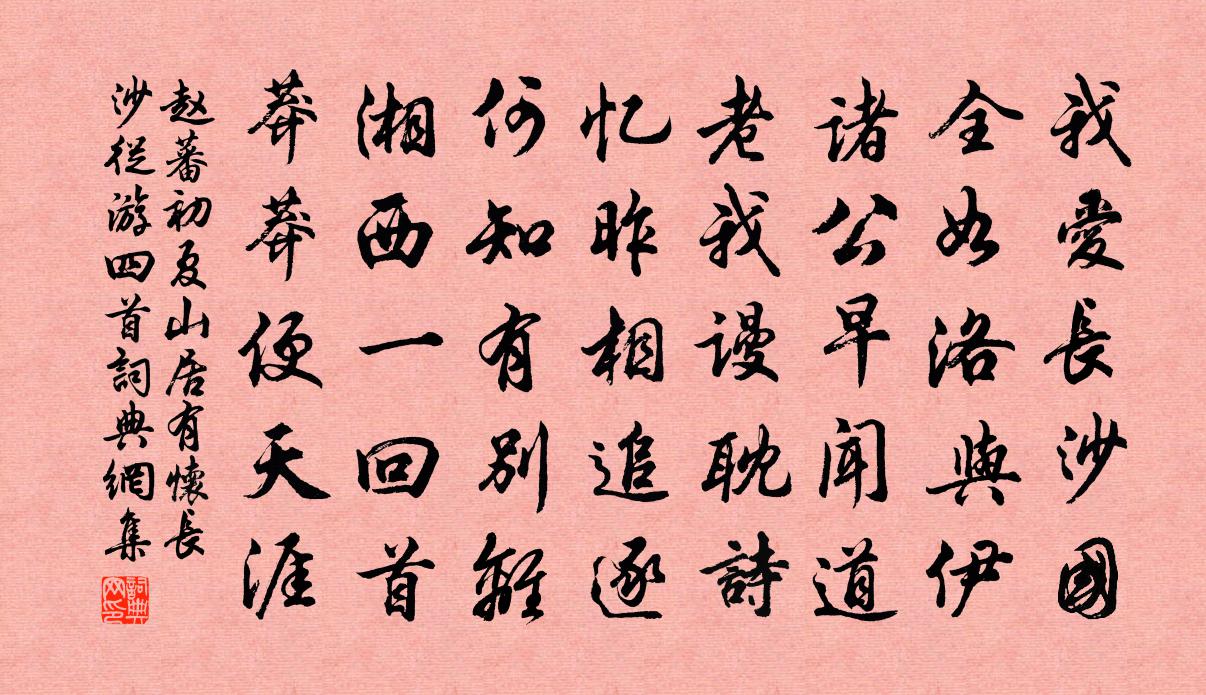 我愛長沙國
全如洛與伊
諸公早聞道
老我謾耽詩
忆昨相追逐
何知有别離
湘西一回首
莽莽便天涯
赵蕃初夏山居有懷長
沙從游四首詞典網集
詞典網印